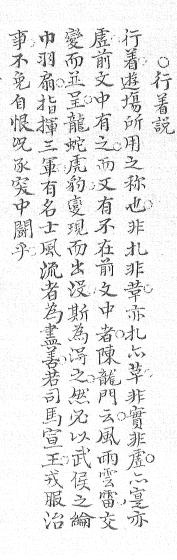 ○行着説
行着遊場所用之称也非札非草亦札亦草非實非虚亦寔亦
虚前文中有之而又有不在前文中者陳龍門云風雨雲雷交
變而並呈龍蛇虎豹变現而出没斯為得之然必以武侯之綸
巾羽扇指揮三軍有名士風流者為盡善若司馬宣王戎服治
事不免自恨况承突中闘乎